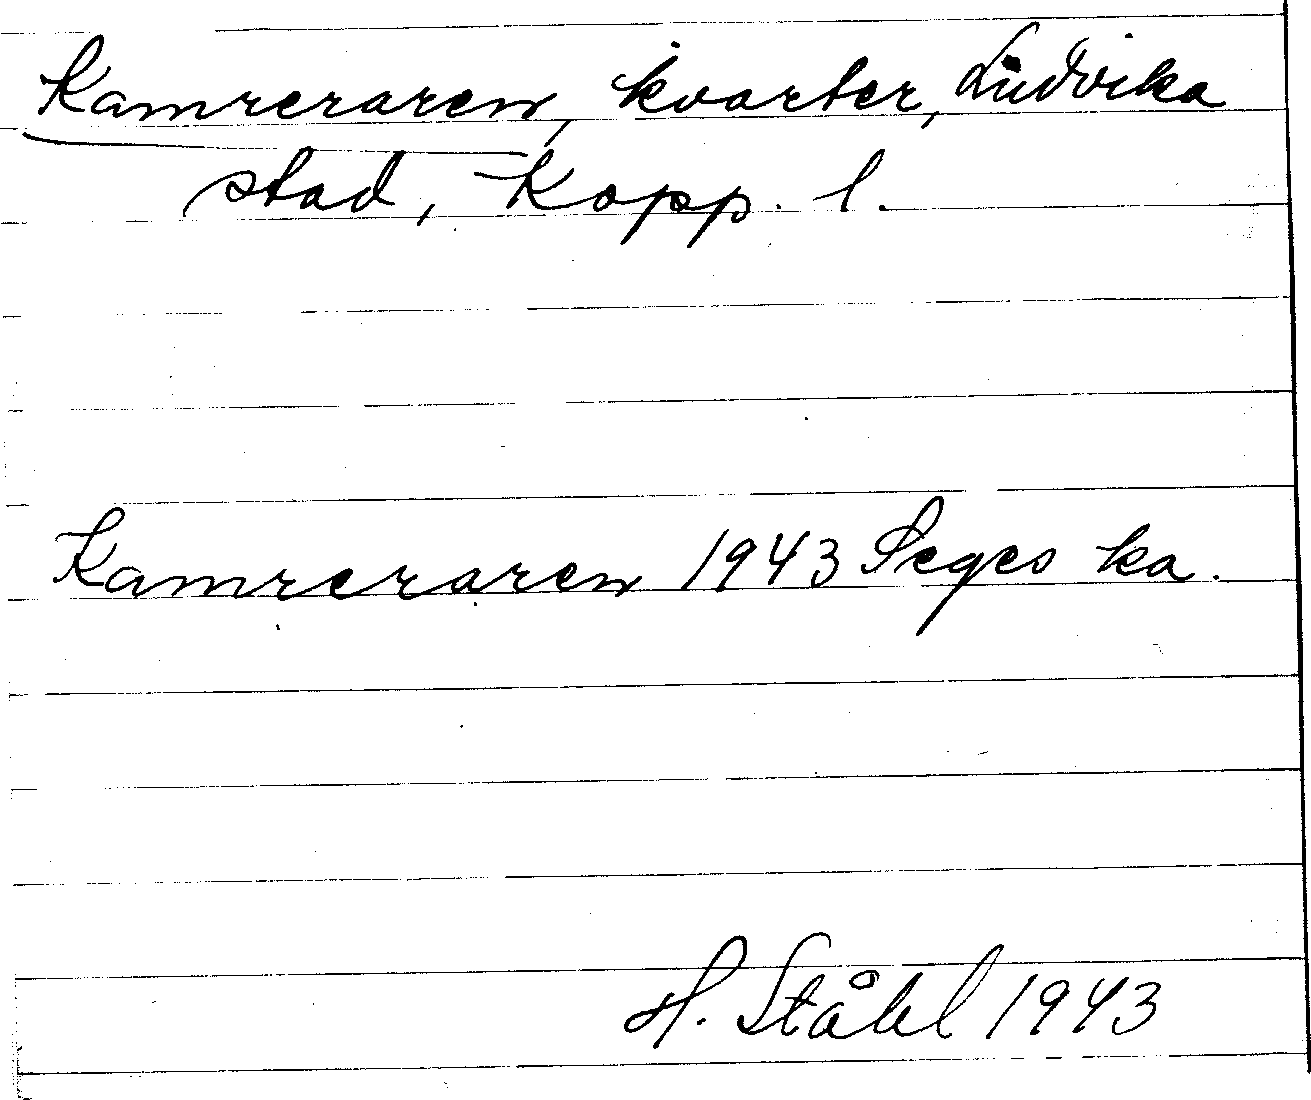 Kamreraren, kvarter, Ludvika
stad, Kopp. l.
Kamreraren 1943 Seges ka.
H. Ståhl 1943